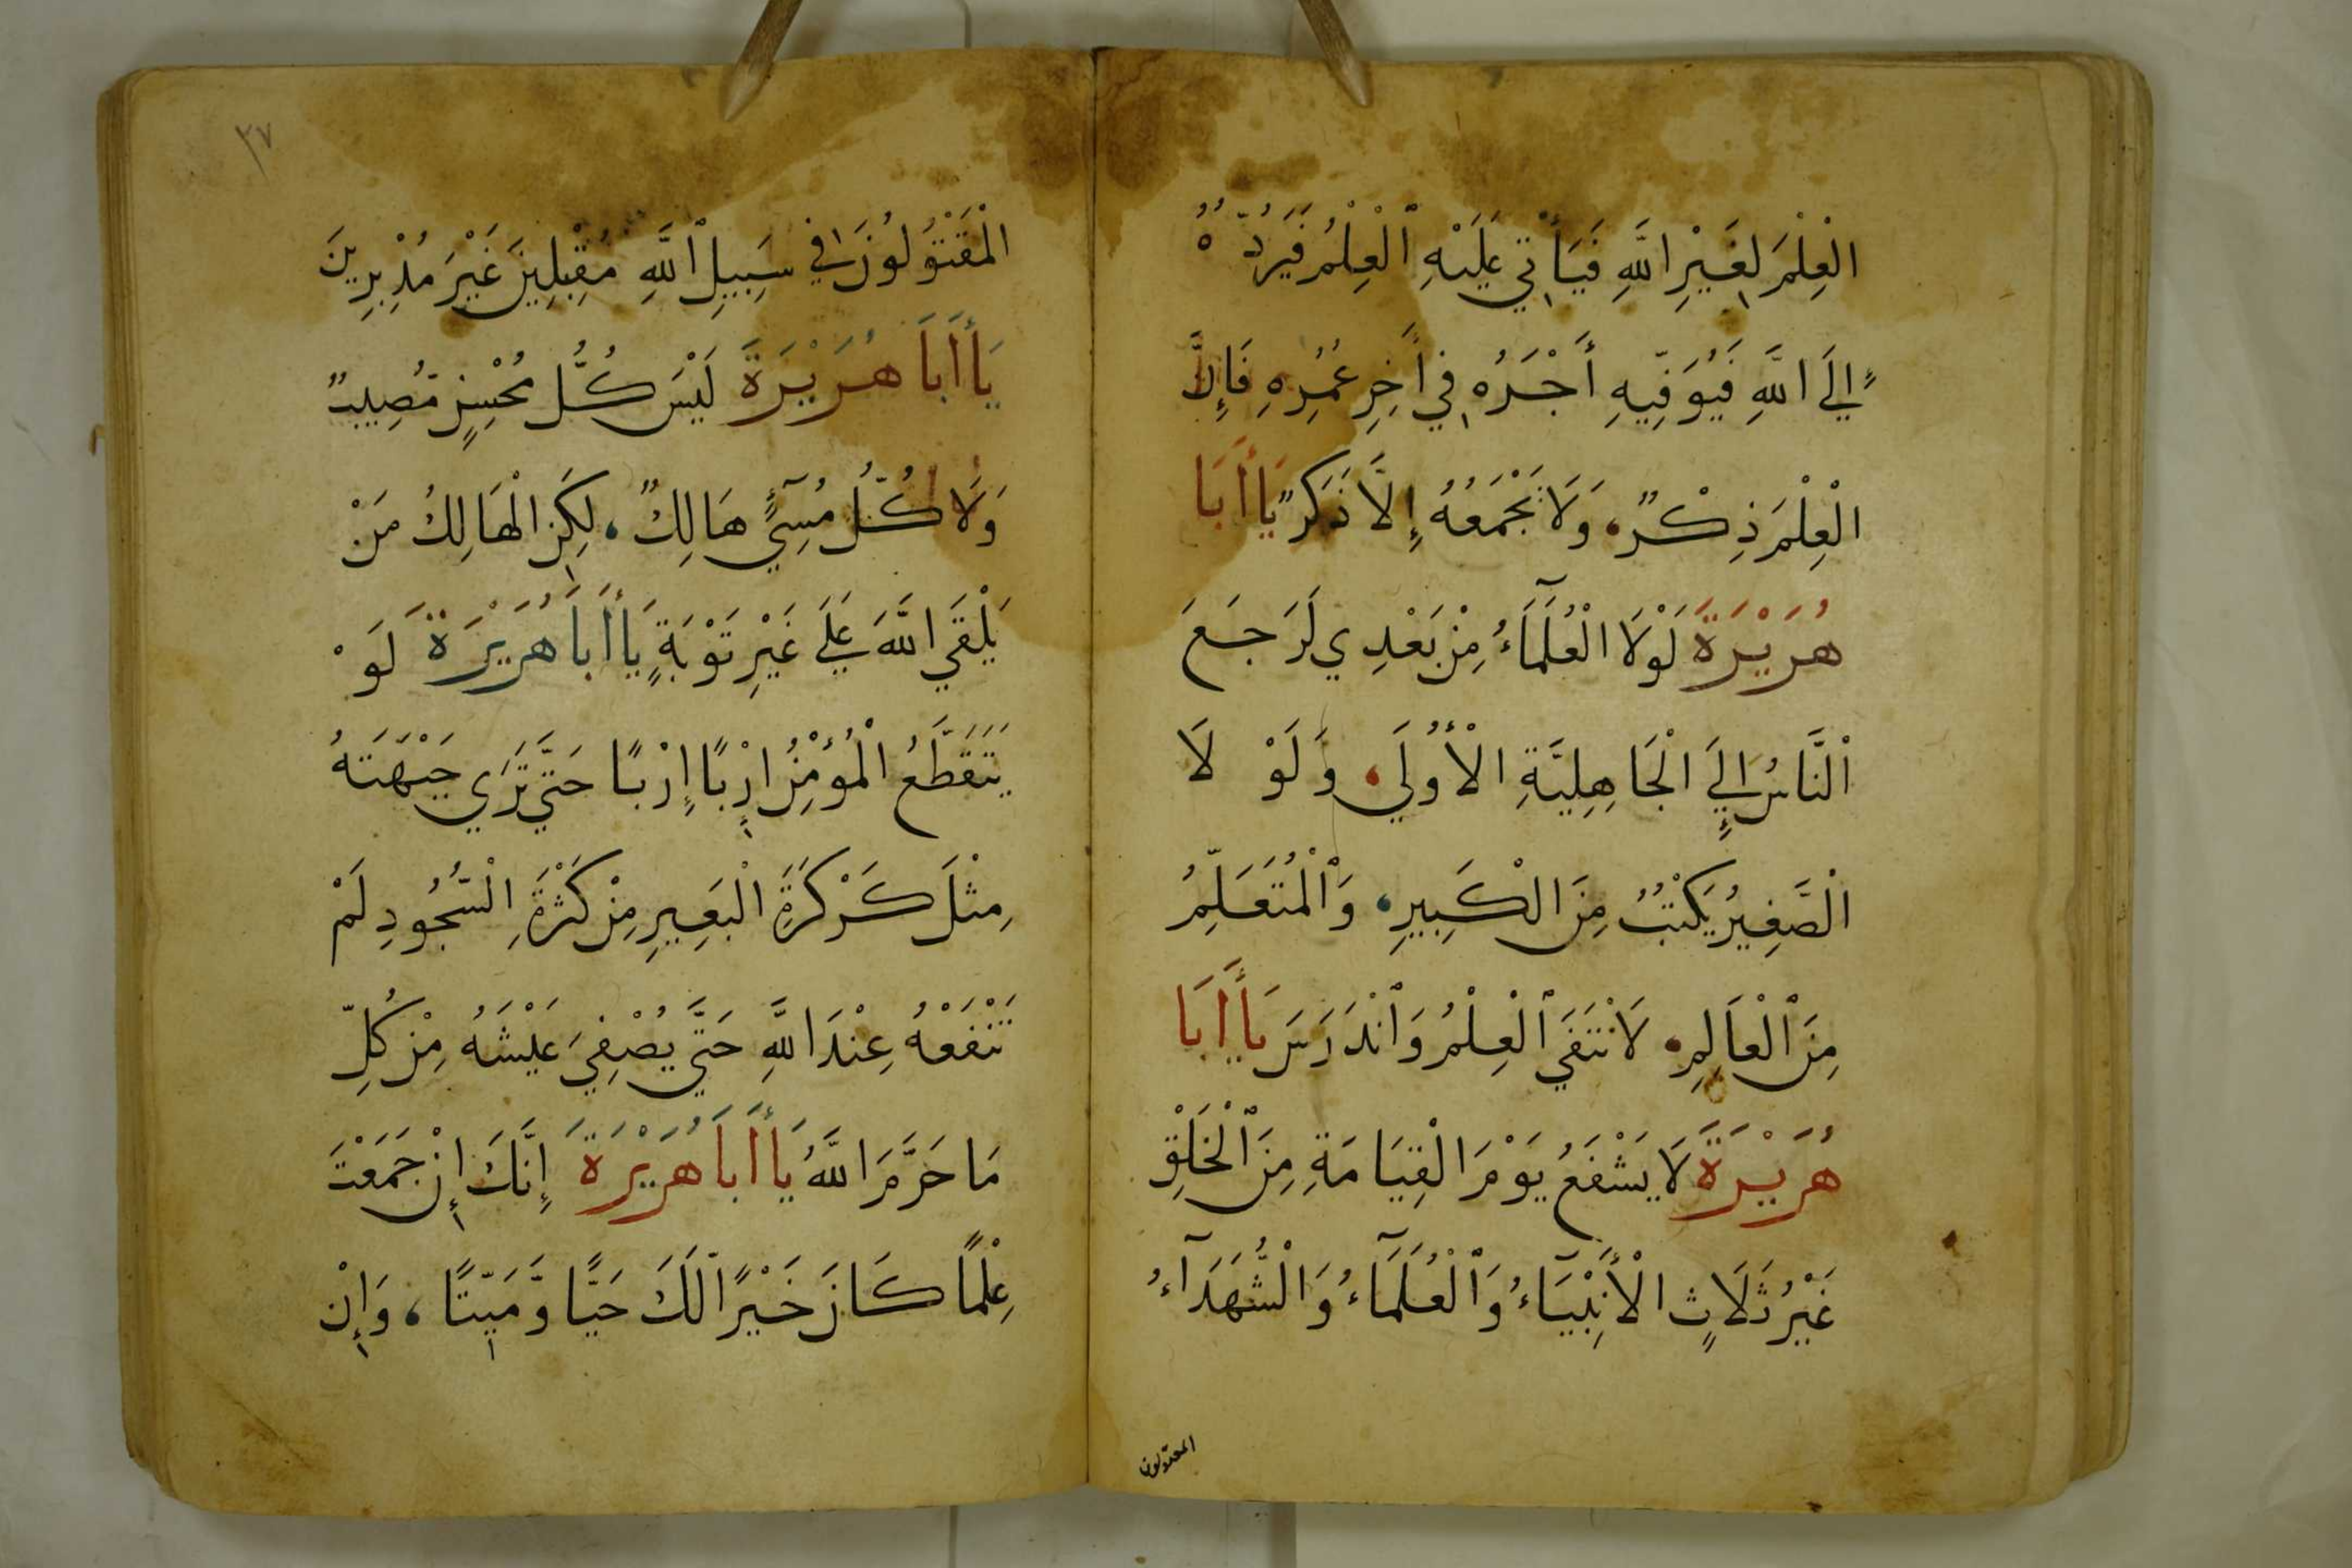 الْعِلْمَ لِغَيْرِ اللَّهِ فَيَأْتِي عَلَيْهِ الْعِلْمُ فَيَرُدُّهُ
إِلَي اللَّهِ فَيُوَفِّيهِ أَجْرَهُ فِي آخِرِ عُمُرِهِ فَإِنَّ
الْعِلْمَ ذِكْرٌ، وَلَا يَجْمَعُهُ إِلَّا ذَكَرٌ يَا أَبَا
هُرَيْرَةَ لَوْلَا الْعُلَمَآءُ مِنْ بَعْدِي لَرَجَعَ
النَّاسُ إِلَي الْجَاهِلِيَّةِ الْأُولَي، وَلَوْ لَا
الصَّغِيرُ يَكْتُبُ مِنَ الْكَبِيرِ، وَالْمُتَعَلِّمُ
مِنَ الْعَالِمِ، لَانْتَفَي الْعِلْمُ وَانْدَرَسَ يَا أَبَا
هُرَيْرَةَ لَا يَشْفَعُ يَوْمَ الْقِيَامَةِ مِنَ الْخَلْقِ
غَيْرُ ثَلَاثٍ الْأَنْبِيَآءُ وَالْعُلَمَآءُ وَالشُّهَدَآءُ
المقتولون
٣٧
الْمَقْتُولُونَ فِي سَبِيلِ اللَّهِ مُقْبِلِينَ غَيْرَ مُدْبِرِينَ
يَا أَبَا هُرَيْرَةَ لَيْسَ كُلُّ مُحْسِنٍ مُصِيبٌ
وَلَا كُلُّ مُسِيٓءٍ هَالِكٌ، لَكِنِ الْهَالِكُ مَنْ
يَلْقَي اللَّهَ عَلَي غَيْرِ تَوْبَةٍ يَا أَبَا هُرَيْرَةَ لَوْ
يَتَقَطَّعُ الْمُؤْمِنُ إِرْبًا إِرْبًا حَتَّي تَرَي جَبْهَتَهُ
مِثْلَ كَرْكَرَةِ الْبَعِيرِ مِنْ كَثْرَةِ السُّجُودِ لَمْ
تَنْفَعْهُ عِنْدَ اللَّهِ حَتَّي يُصْفِيَ عَيْشَهُ مِنْ كُلِّ
مَا حَرَّمَ اللَّهُ يَا أَبَا هُرَيْرَةَ إِنَّكَ إِنْ جَمَعْتَ
عِلْمًا كَانَ خَيْرًا لَكَ حَيًّا وَمَيِّتًا، وَإِنْ